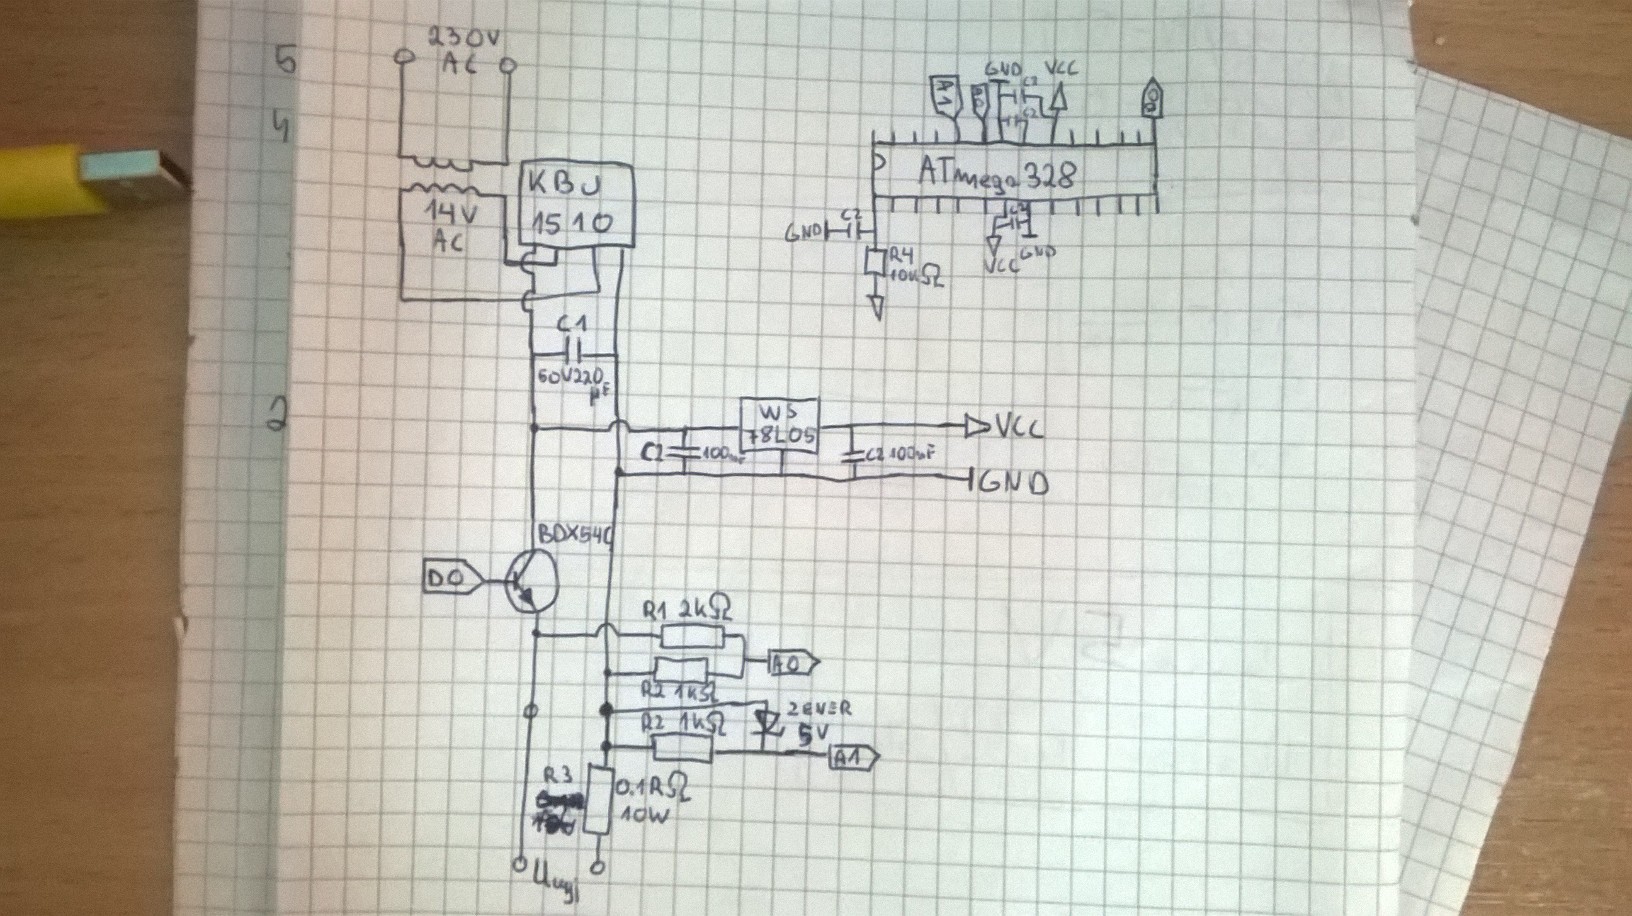 230V
AC
5
4
KBU
1510
14V
AC
C1
50V220
µF
2
W5
78L05
VCC
C2
100nF
C2 100nF
GND
BDX54C
D0
R1 2kΩ
A0
R2 1kΩ
R2 1kΩ
ZENER
5V
A1
R3
0.1RΩ
10W
Uwyj
A1
A0
GND
VCC
C2
C2
D0
ATmega 328
GND
C2
C2
R4
10kΩ
VCC
GND